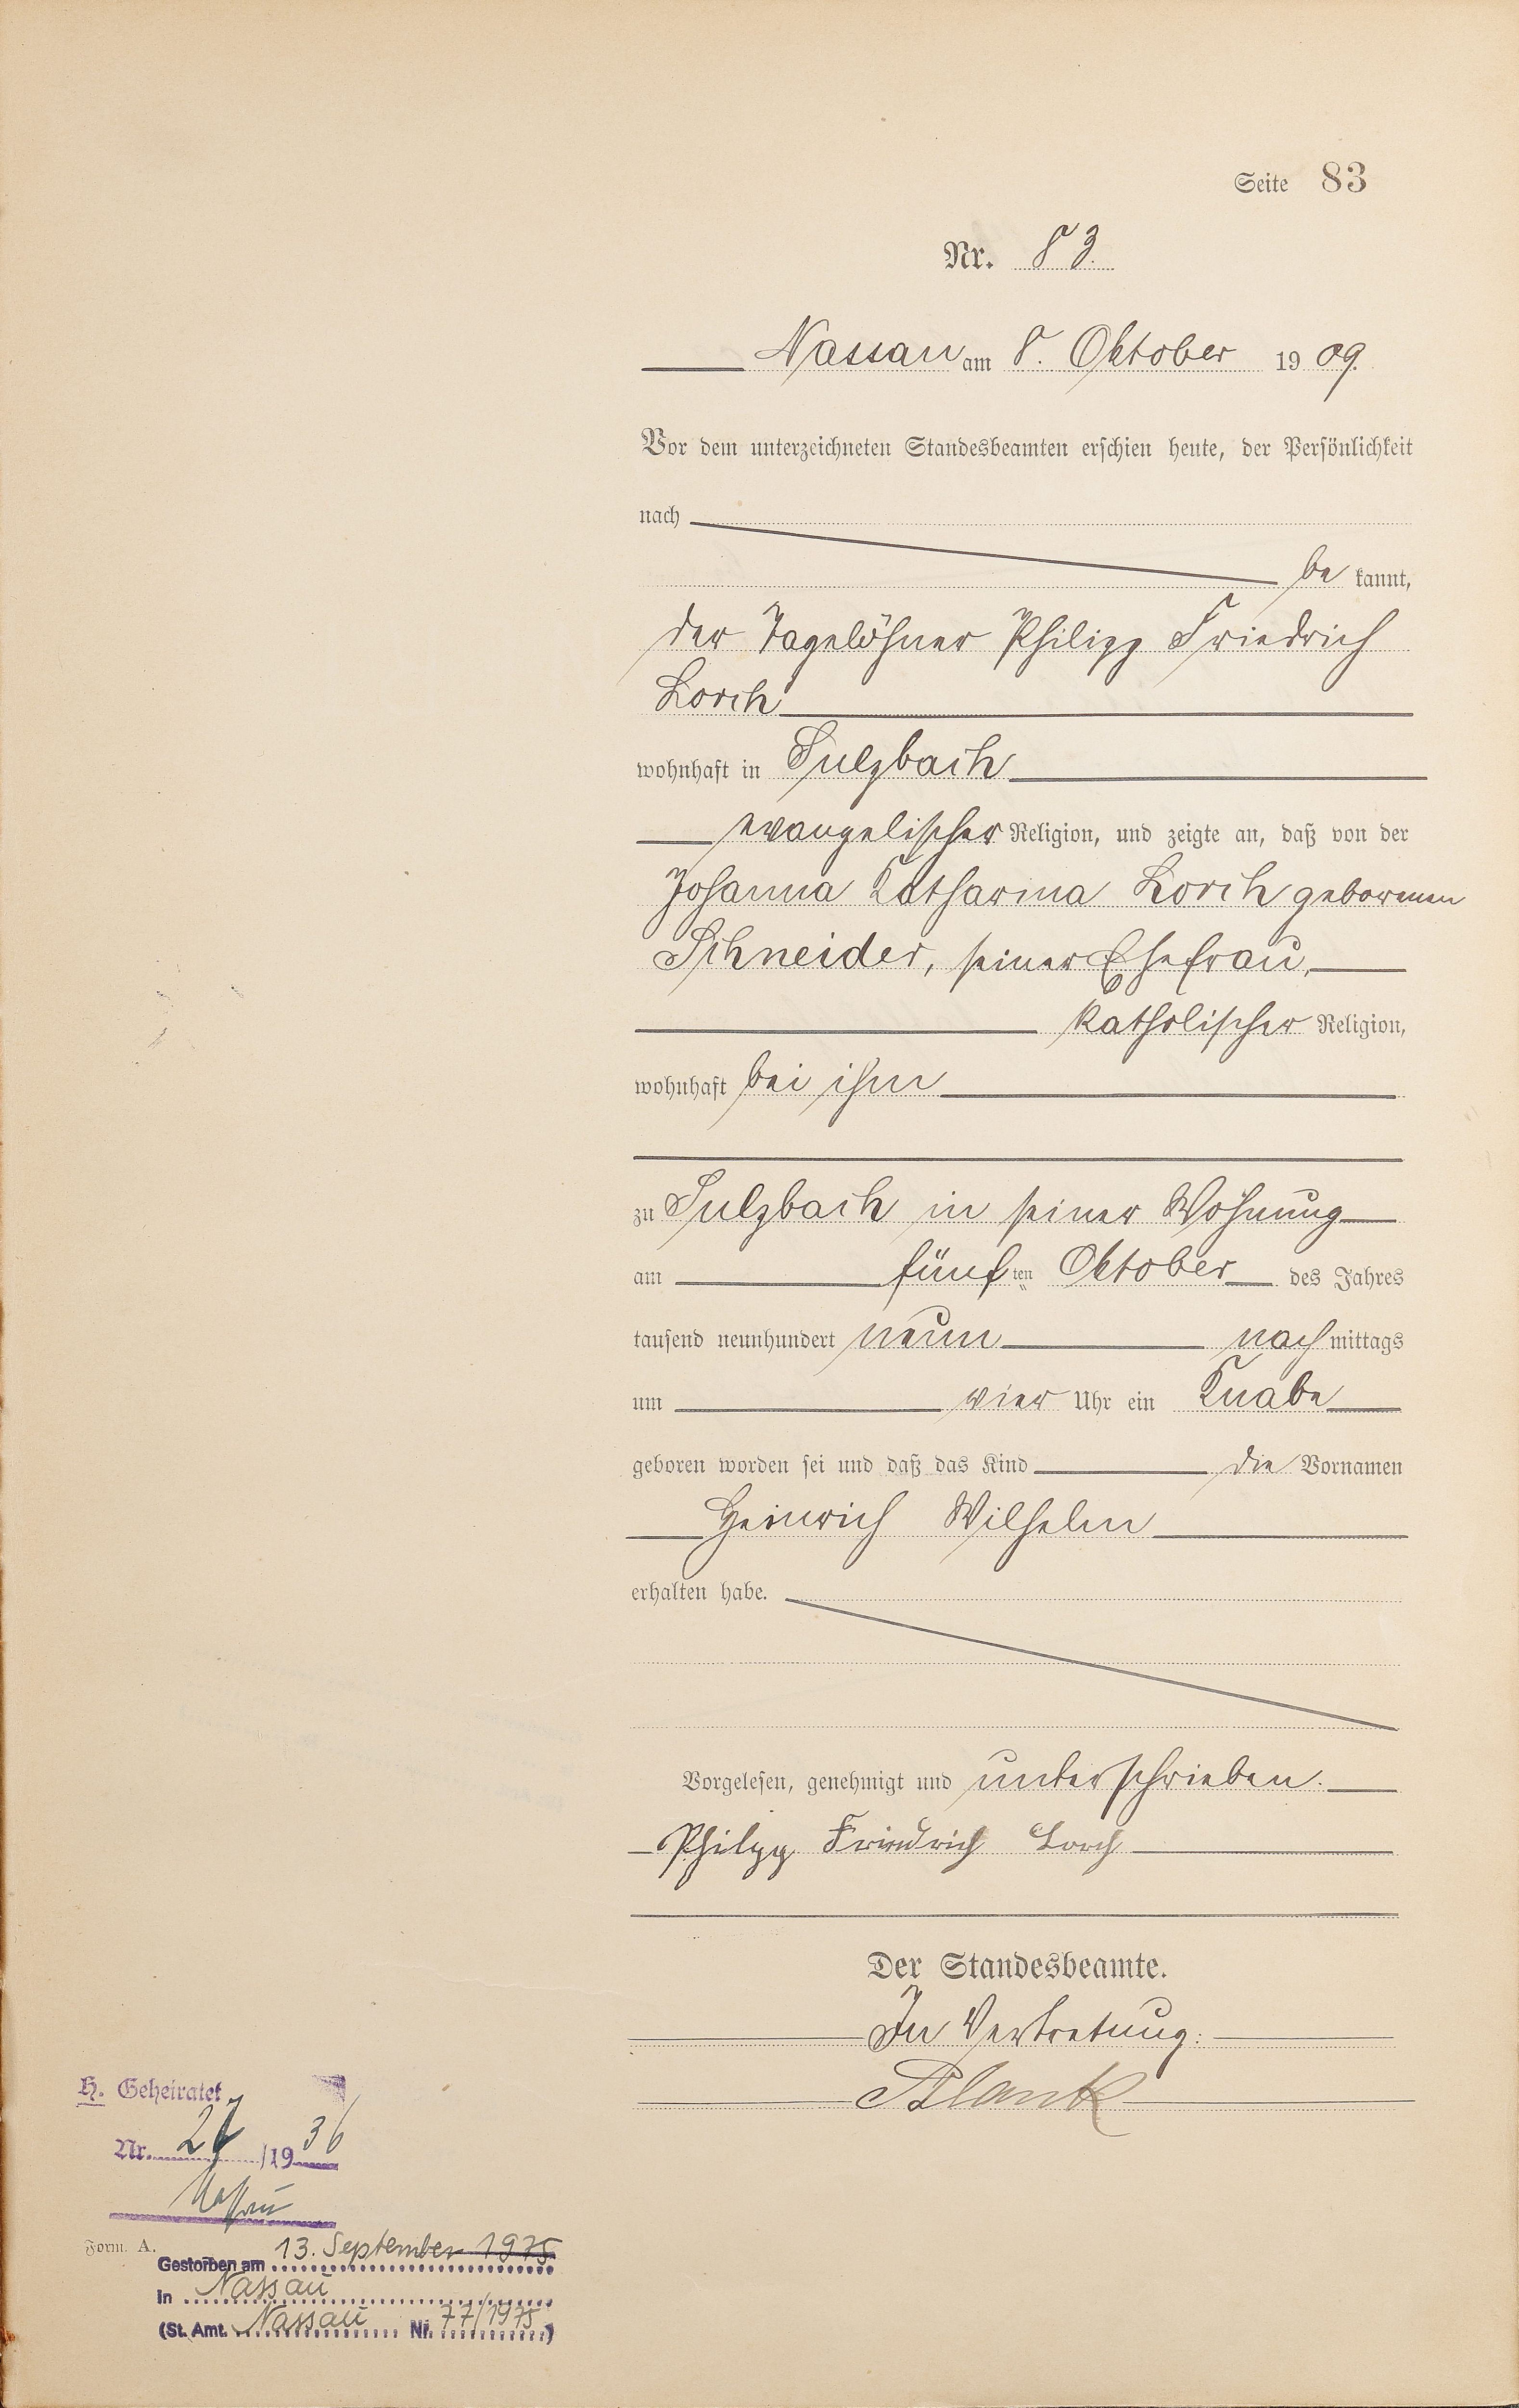 Seite 83
Nr. 83.
Nassau am 8. Oktober 1909.
Vor dem unterzeichneten Standesbeamten erschien heute, der Persönlichkeit
nach
be kannt,
der Tagelöhner Philipp Friedrich
Lorch
wohnhaft in Sulzbach
evangelischer Religion, und zeigte an, daß von der
Johanna Katharina Lorch geborenen
Schneider, seiner Ehefrau,
katholischer Religion,
wohnhaft bei ihm
zu Sulzbach in seiner Wohnung
am fünften Oktober des Jahres
tausend neunhundert neun nach mittags
um vier Uhr ein Knabe
geboren worden sei und daß das Kind die Vornamen
Heinrich Wilhelm
erhalten habe.
Vorgelesen, genehmigt und unterschrieben.
Philipp Friedrich Lorch
Der Standesbeamte.
In Vertretung:
Blank
H. Geheiratet
Nr. /1936
Nassau
Form. A.
Gestorben am 13. September 1975
in Nassau
(St. Amt. Nassau Nr. 77/1975)